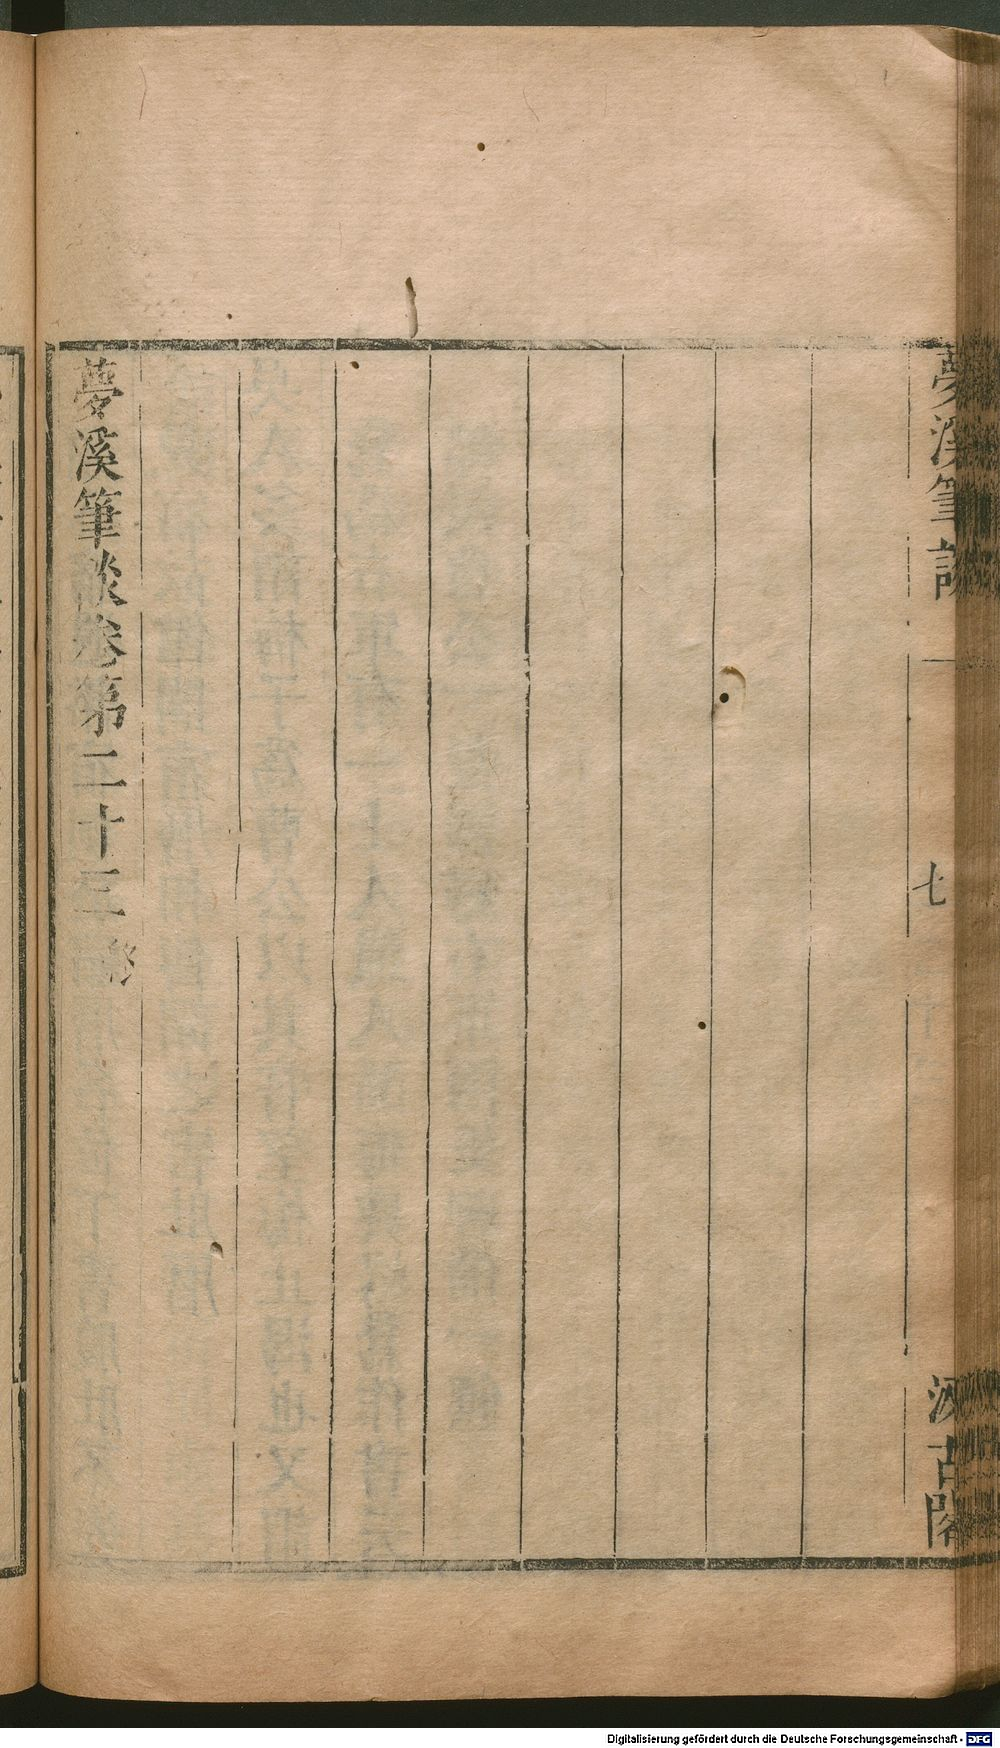 夢溪筆談
七
汲古閣
夢溪筆談卷第二十三終
Digitalisierung gefördert durch die Deutsche Forschungsgemeinschaft - DFG